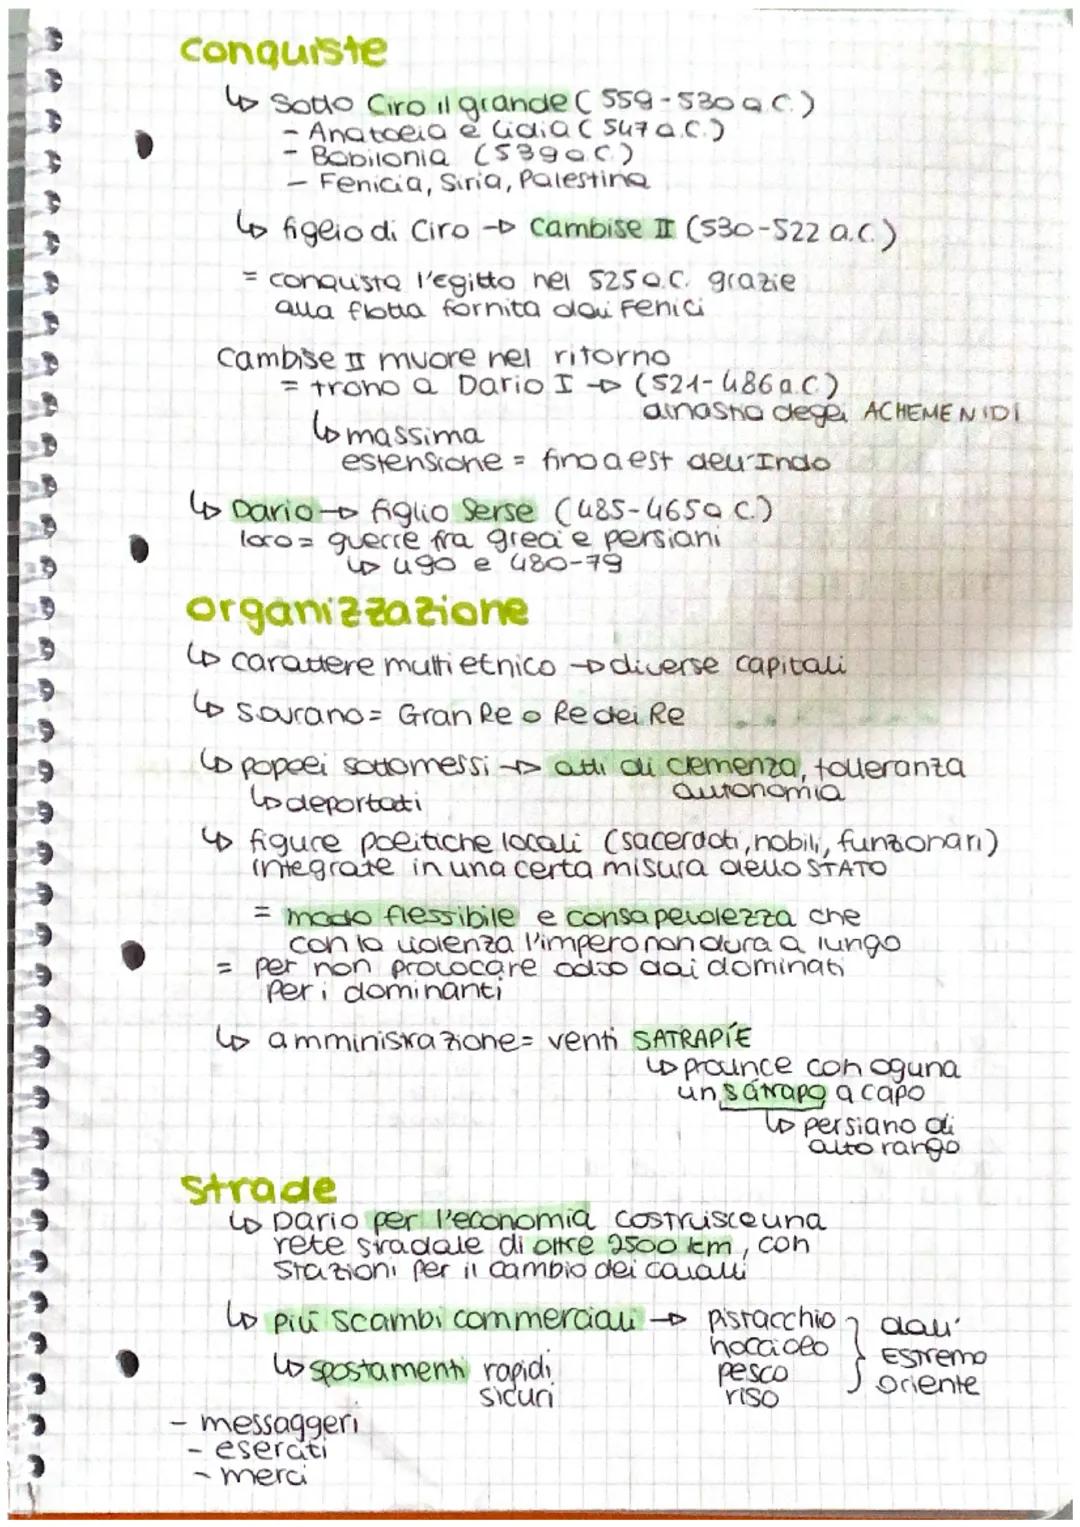 conquiste
↳ Sotto Ciro il grande (559-530 a.C.)
- Anatolia e Lidia (547 a.C.)
- Babilonia (539 a.C.)
- Fenicia, Siria, Palestina
↳ figlio di Ciro → Cambise II (530-522 a.C.)
= conquista l'egitto nel 525 a.C. grazie
alla flotta fornita dai Fenici
Cambise II muore nel ritorno
= trono a Dario I → (521-486 a.C.)
dinastia degli ACHEMENIDI
↳ massima
estensione = fino a est dell'Indo
↳ Dario → figlio Serse (485-465 a.C.)
loro = guerre fra greci e persiani
↳ 490 e 480-79
organizzazione
↳ carattere multietnico → diverse capitali
↳ Sovrano = Gran Re o Re dei Re
↳ popoli sottomessi → atti di clemenza, tolleranza
autonomia
↳ deportati
↳ figure politiche locali (sacerdoti, nobili, funzionari)
integrate in una certa misura dello STATO
= modo flessibile e consapevolezza che
con la violenza l'impero non dura a lungo
= per non provocare odio dai dominati
per i dominanti
↳ amministrazione = venti SATRAPÍE
↳ province con oguna
un sátrapo a capo
↳ persiano di
alto rango
strade
↳ Dario per l'economia costruisce una
rete stradale di oltre 2500 km, con
stazioni per il cambio dei cavalli
↳ più scambi commerciali → pistacchio
nocciolo
pesco
riso
} dall'
ESTremo
Oriente
↳ spostamenti rapidi
sicuri
- messaggeri
- eserciti
- merci